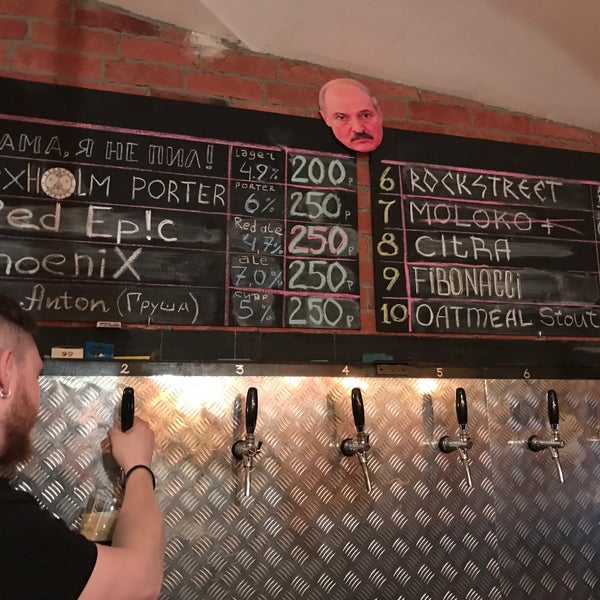 АМА, Я НЕ ПИЛ! Lager 4,9% 200р
HOLM PORTER PORTER 6% 250р
Red Ep!c Red ale 4.7% 250р
hoeniX ale 7,0% 250р
Anton (Груша) сидр 5% 250р
6 ROCKSTREET
7 MOLOKO +
8 CITRA
9 FIBONACCI
10 OATMEAL Stout
2 3 4 5 6